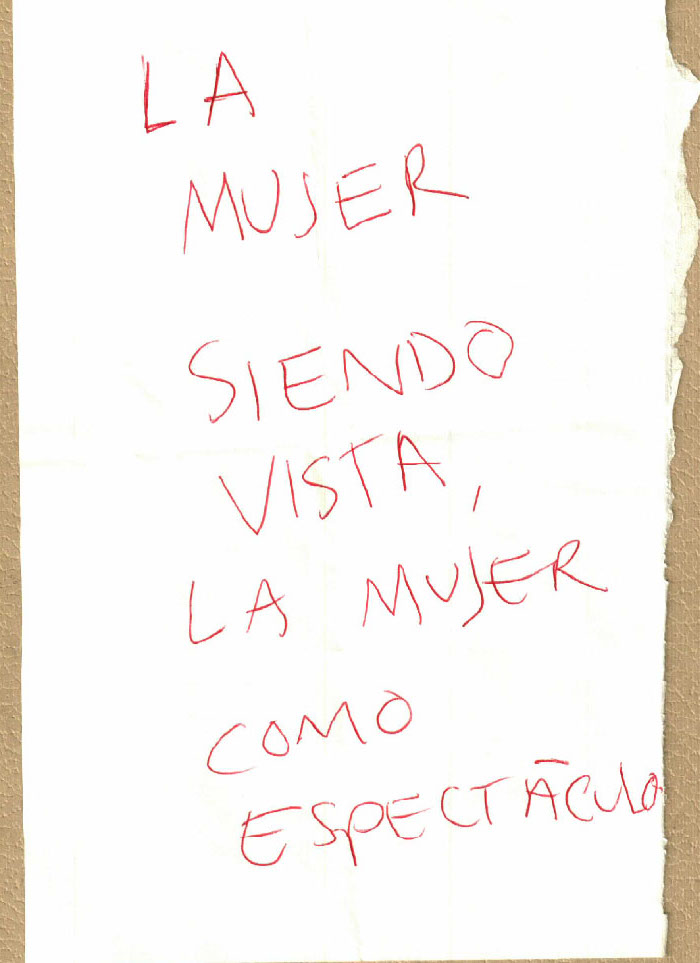 LA
MUJER
SIENDO
VISTA,
LA MUJER
COMO
ESPECTÁCULO